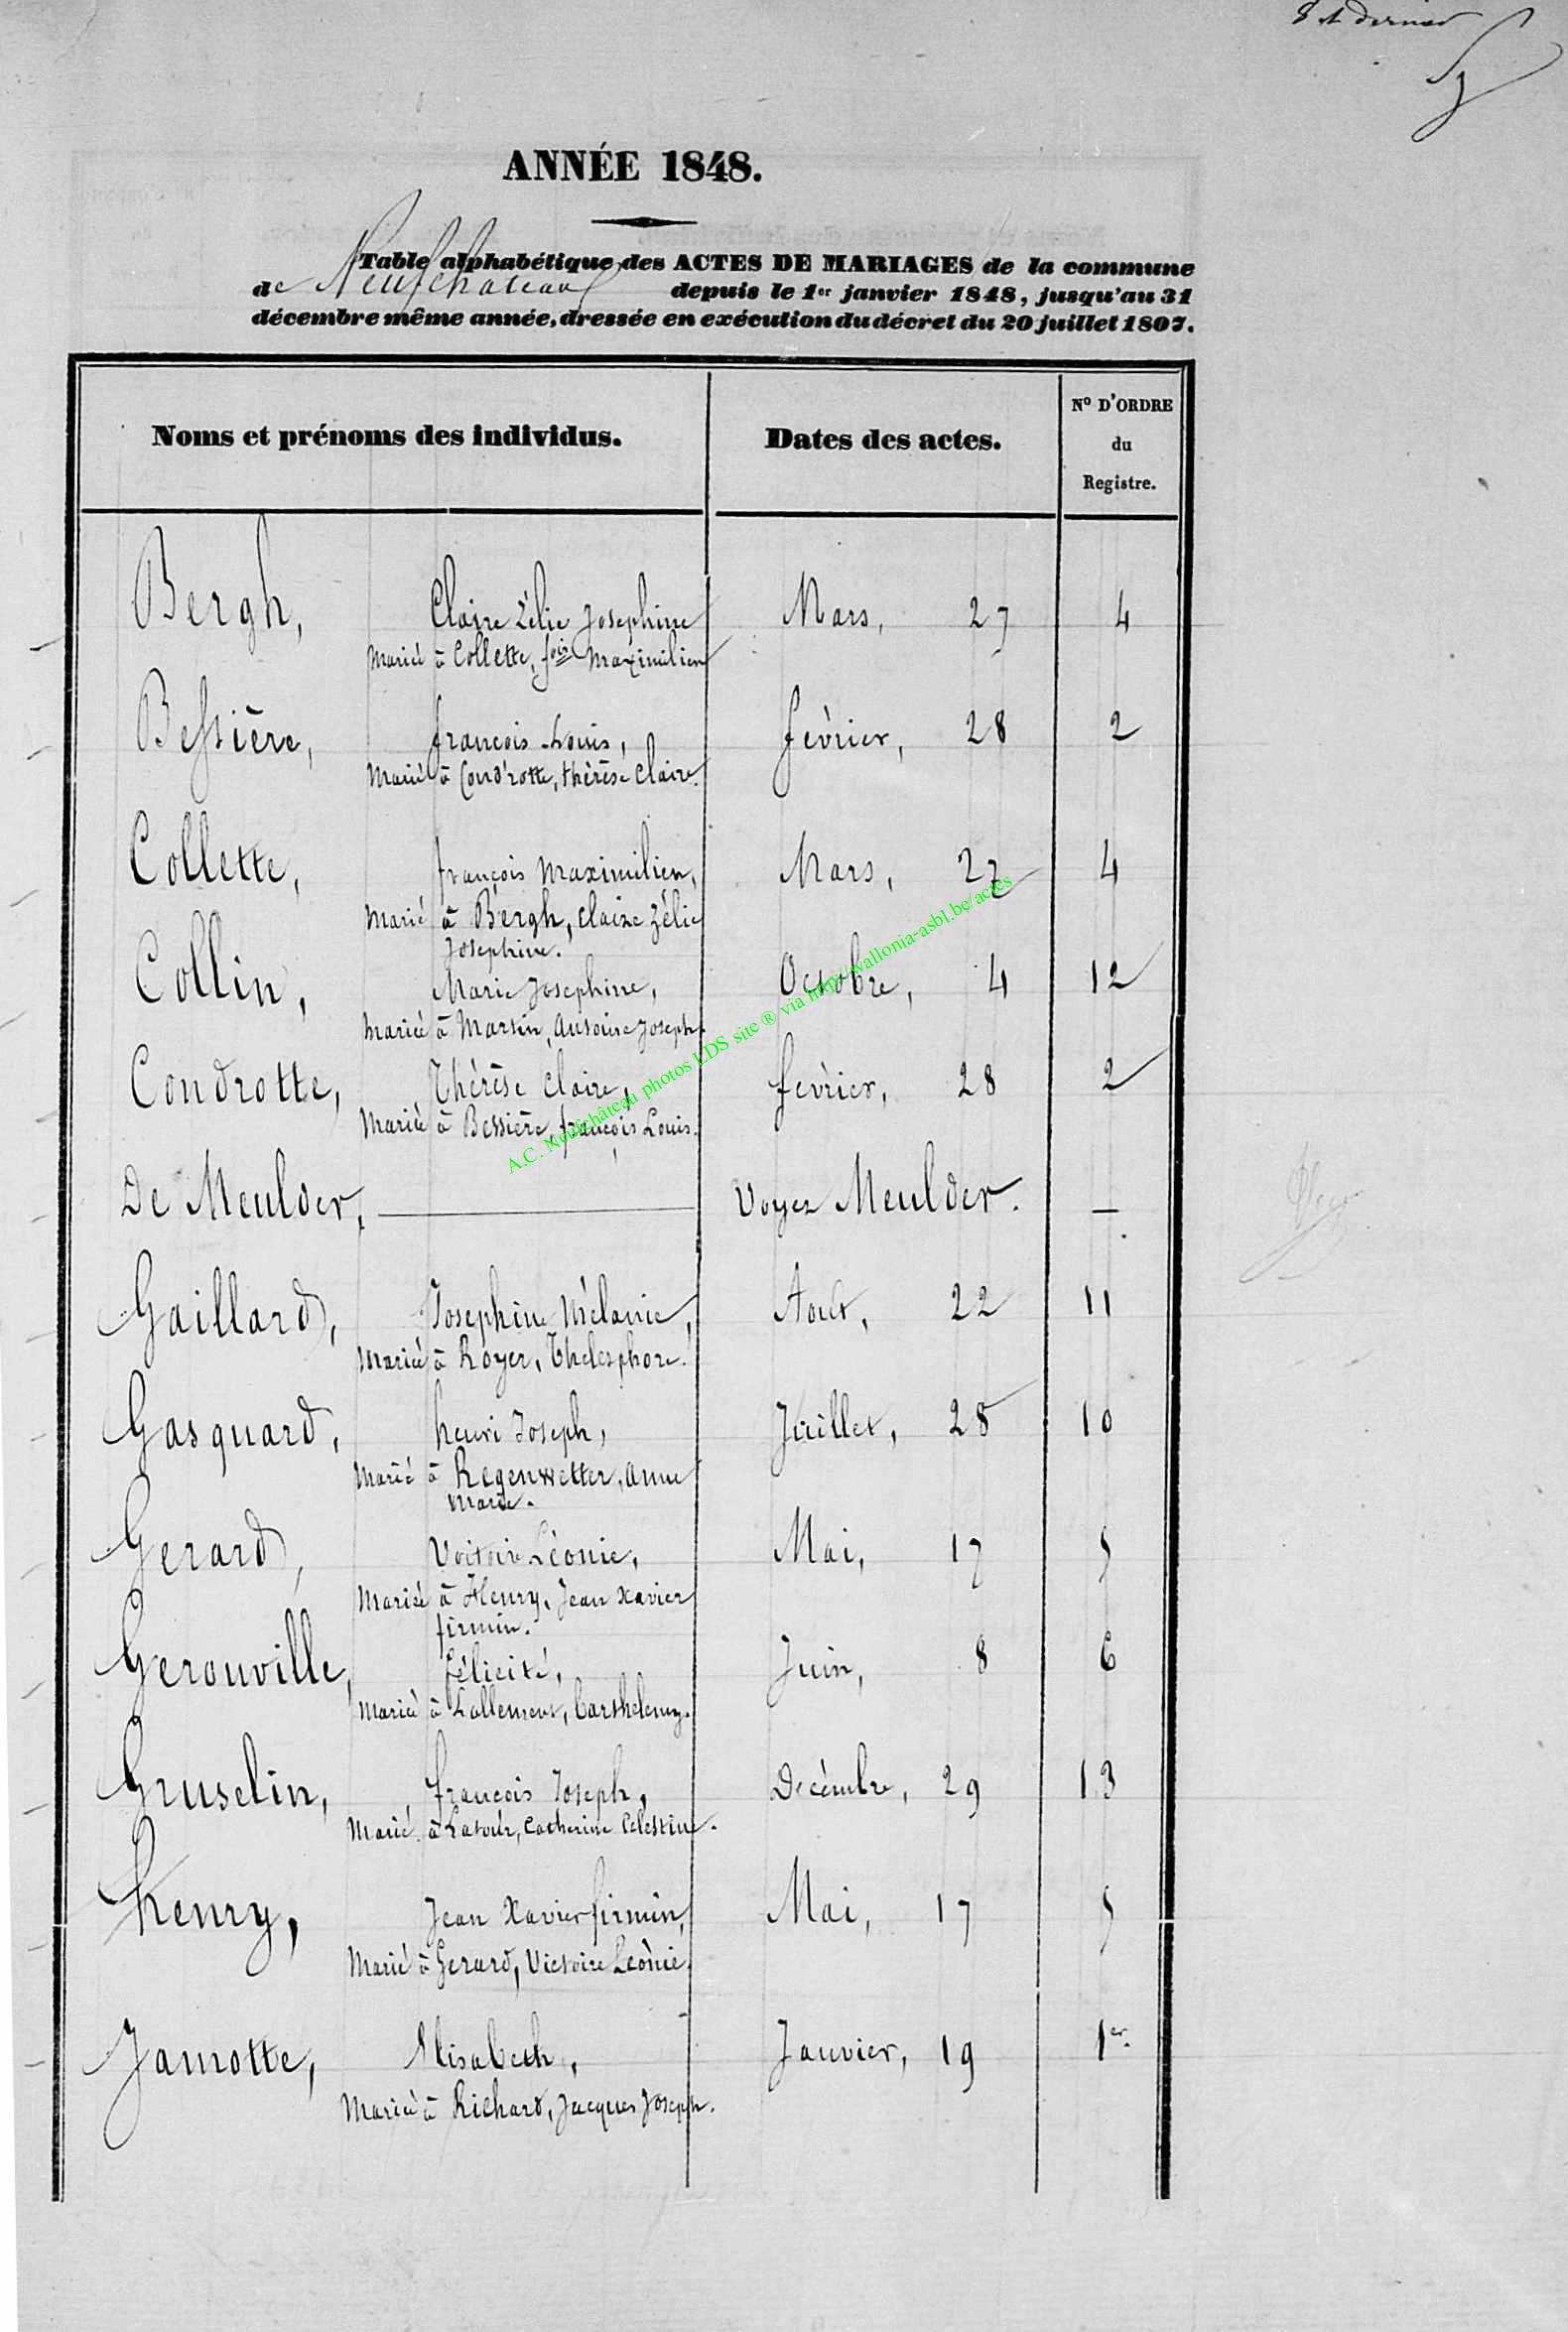 8 et dernier
ANNÉE 1848.
Table alphabétique des ACTES DE MARIAGES de la commune
de Neufchateau depuis le 1er janvier 1848, jusqu'au 31
décembre même année, dressée en exécution du décret du 20 juillet 1807.
Noms et prénoms des individus. Dates des actes. No D'ORDRE
du
Registre.
Bergh, Claire Zélie Josephine Mars, 27 4
Mariée à Collette, fois Maximilien
Bessière, françois Louis, fevrier, 28 2
Marié à Condrotte, thérèse Claire.
Collette, françois Maximilien, Mars, 27 4
Marié à Bergh, Claire Zélie
Josephine.
Collin, Marie Josephine, Octobre, 4 12
Mariée à Martin, Antoine Joseph.
Condrotte, Thérèse Claire, fevrier, 28 2
Mariée à Bessière, françois Louis.
De Meulder, Voyez Meulder. —
Gaillard, Josephine Mélanie, Aout, 22 11
Mariée à Royer, Thelesphore.
Gasquard, henri Joseph, Juillet, 28 10
Marié à Regenwetter, Anne
Marie.
Gerard, Léonie, Mai, 17 5
Mariée à Henry, Jean Xavier
firmin.
Gerouville, félicité, Juin, 8 6
Mariée à Lallement, barthelemy.
Gruselin, françois Joseph, Decembre, 29 13
Marié à Latour, Catherine Celestine.
henry, Jean Xavier firmin, Mai, 17 5
Marié à Gerard, Victoire Leónie.
Jamotte, Elisabeth, Janvier, 19 1er.
Mariée à Richard, Jacques Joseph.
A.C. Neufchâteau photos LDS site ® via http://wallonia-asbl.be/actes